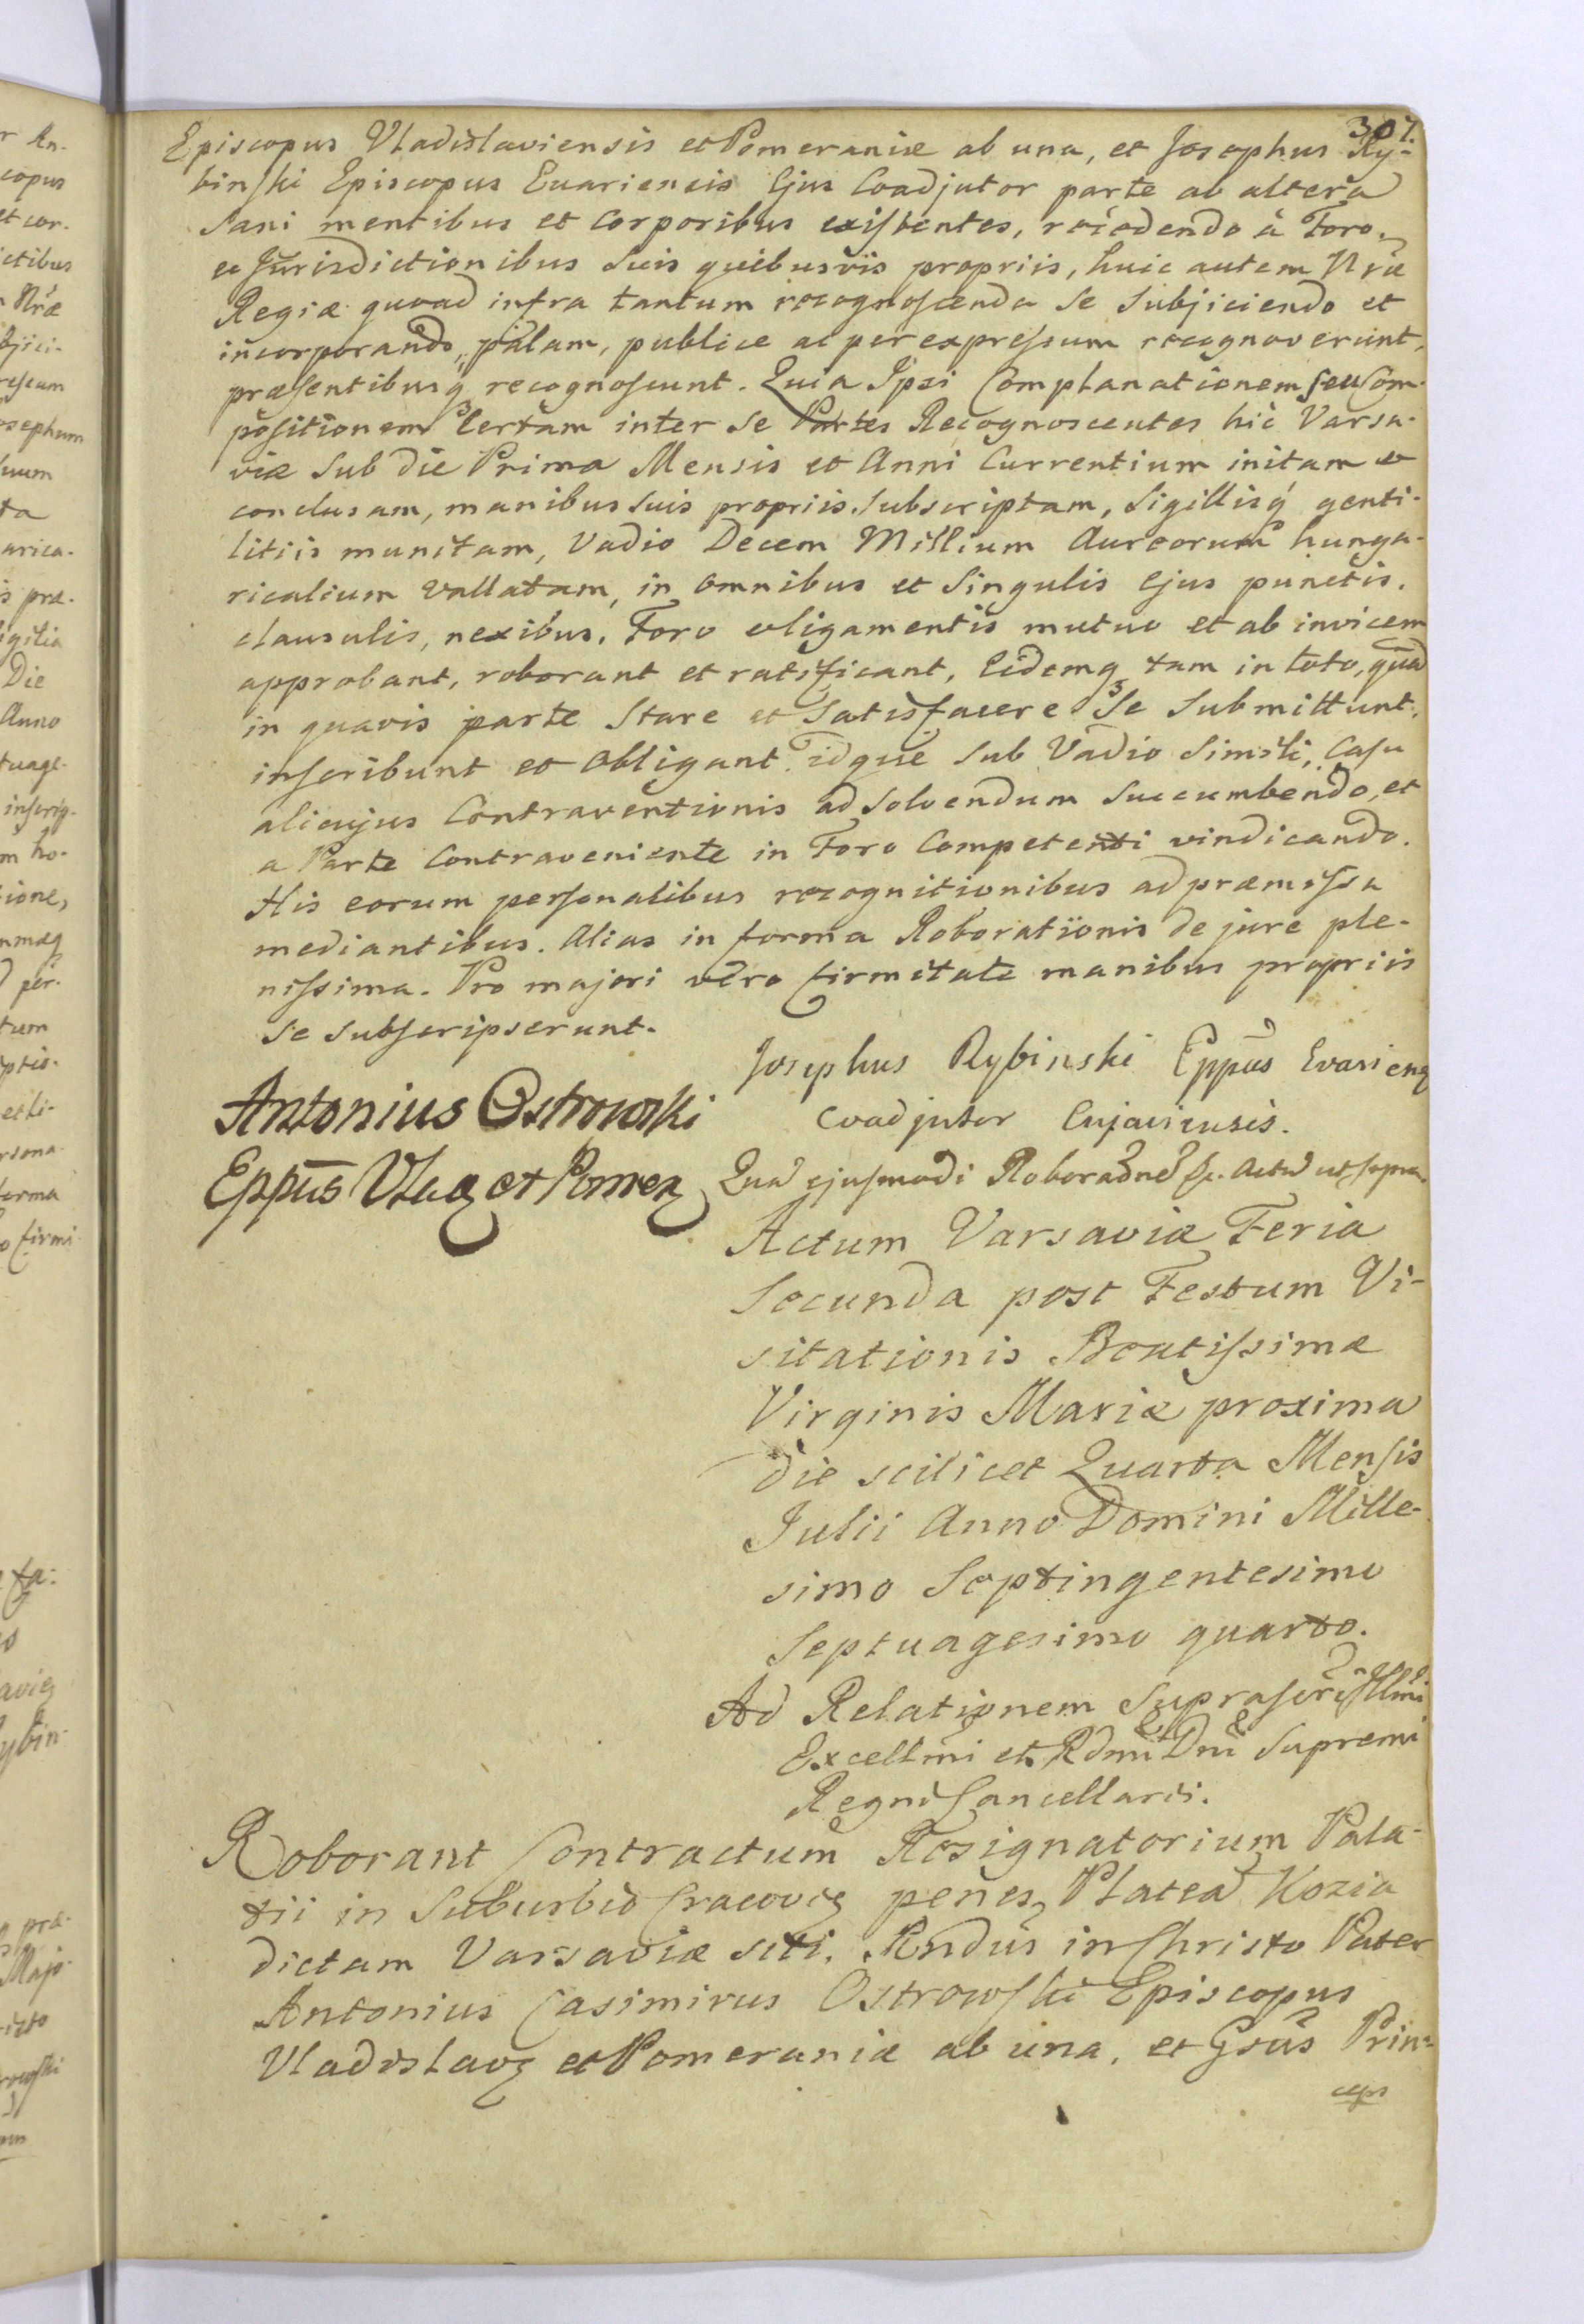 307.
Episcopus Vladislaviensis et Pomeraniæ ab una, et Josephus Ry-
binski Episcopus Evariensis Ejus Coadjutor parte ab altera
Sani mentibus et Corporibus existentes, recedendo à Foro.
et Jurisdictionibus Suis quibusvis propriis, huic autem Nrae
Regiæ quoad infra tantum recognoscenda Se Subjiciendo et
incorporando, palam, publice ac per expressum recognoverunt,
præsentibusq recognoscunt. Quia Ipsi Complanationem seu Com-
positionem Certam inter Se Partes Recognoscentes hic Varsa-
viæ Sub die Prima Mensis et Anni Currentium initam et
conclusam, manibus Suis propriis Subscriptam, Sigillisq genti-
litiis munitam, Vadio Decem Millium Aureorum hunga-
ricalium Vallatam, in Omnibus et Singulis Ejus punctis.
clausulis, nexibus. Foro oligamentis mutuo et ab invicem
approbant, roborant et ratificant, Eidemq tam in toto, quã
in quavis parte Stare et Satisfacere Se Submittunt.
inscribunt et Obligant idque Sub Vadio Simili, Casu
alicujus Contraventionis ad Solvendum Succumbendo, et
a Parte Contraveniente in Foro Competenti vindicando.
His eorum personalibus recognitionibus ad præmissa
mediantibus. Alias in forma Roborationis de jure ple-
nissima. Pro majori vero firmitate manibus propriis
Se Subscripserunt.
Josephus Rybinski Eppũs Evarieng
Coadjutor Cujaviensis.
Antonius Ostrowski
Eppũs Vlag et Pomeq
Qua ejusmodi Roboraõne &c. Actũ ut supra
Actum Varsaviæ Feria
Secunda post Festum Vi-
sitationis Beatissimæ
Virginis Mariæ proxima
die scilicet Quarta Mensis
Julii Anno Domini Mille-
simo Septingentesimo
Septuagesimo quarto.
Ad Relationem Suprascri Illmi
Excellmi et Rdmi Dni Supremi
Regni Cancellarii.
Roborant Contractum Resignatorium Pala-
tii in Suburbio Cracovieg penes Plateã Kozia
dictam Varsaviæ siti. Rndũs in Christo Pater
Antonius Casimirus Ostrowski Episcopus
Vladislavq et Pomeraniæ ab una. et Gsũs Prin-
ceps